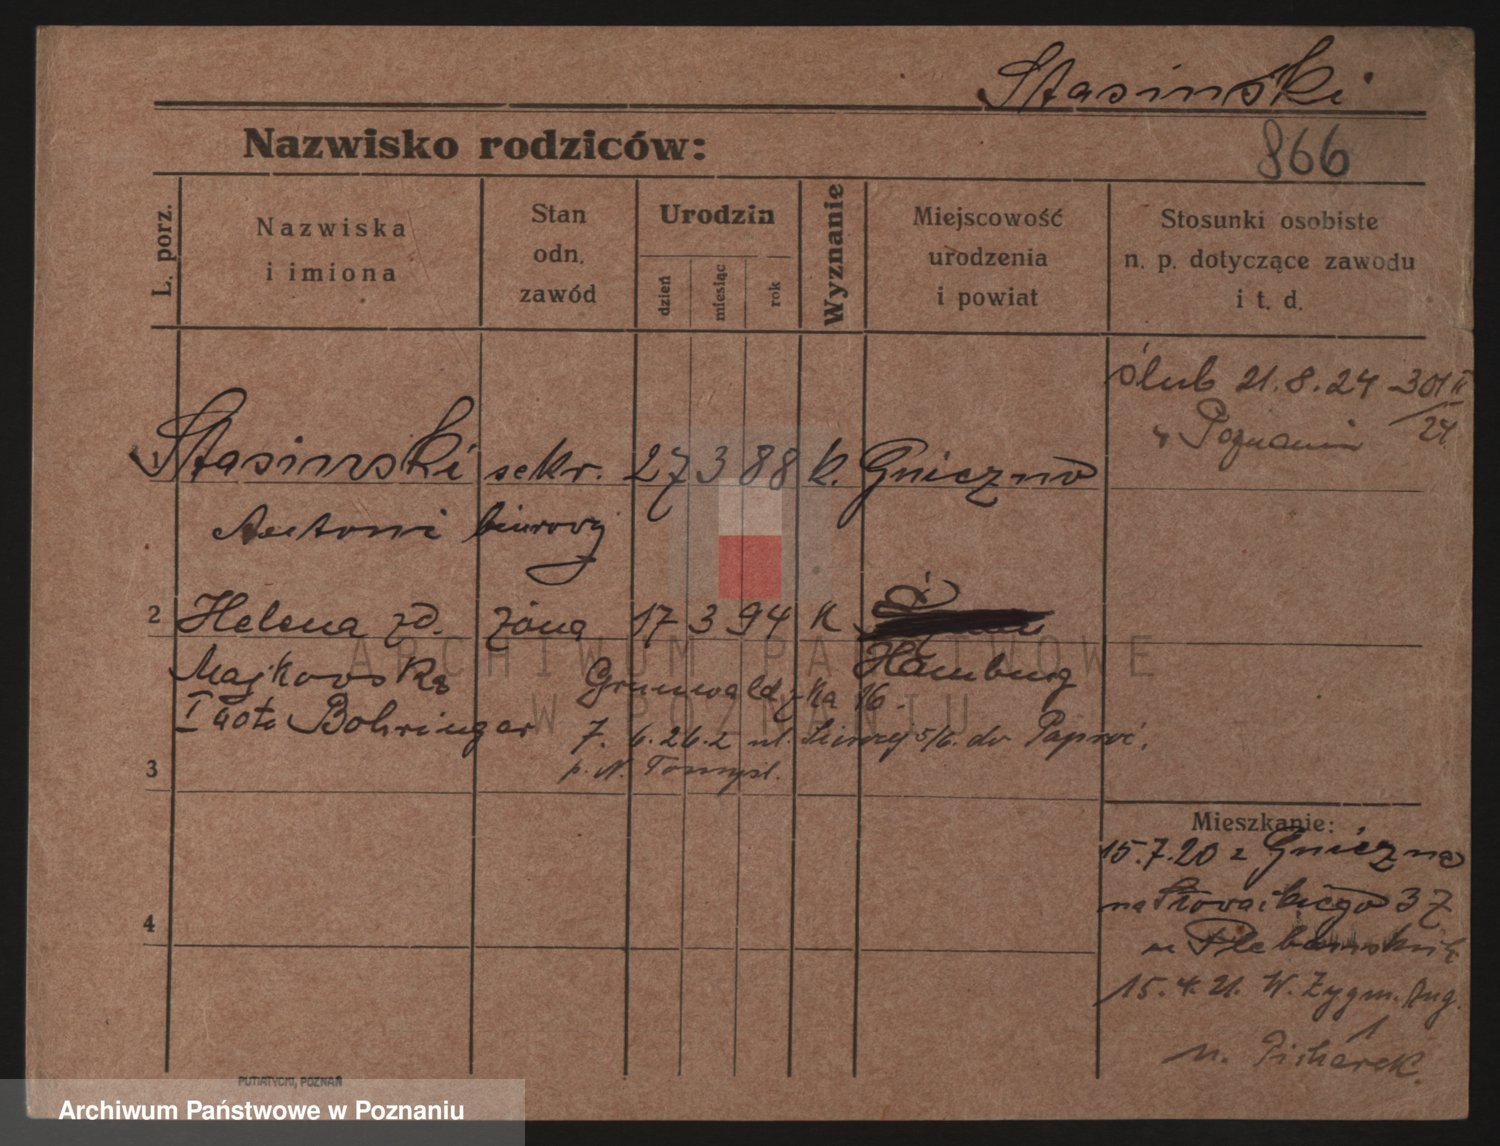 Stasinski
Nazwisko rodziców:
866
L. porz.
Nazwiska
i imiona
Stan
odn.
zawód
Urodzin
dzień
miesiąc
rok
Wyznanie
Miejscowość
urodzenia
i powiat
Stosunki osobiste
n. p. dotyczące zawodu
i t. d.
ślub 21.8.24 - 301 II
24
w Poznaniu
Stasinski sekr. 27 3 88 k. Gniezno
Antoni biurowy
2 Helena zd. żona 17 3 94 K
Majkowska Hamburg
Grunwaldzka 16.
I voto Bohringer
7. 6.26. z ul. 5/6. do
p. N. Tomyśl.
3
4
Mieszkanie:
15.7.20 z Gniezna
na Słowackiego 37
u
15.4.21. W. Zygm. Aug.
1
u.
PUTIATYCKI, POZNAŃ
ARCHIWUM PAŃSTWOWE
W POZNANIU
Archiwum Państwowe w Poznaniu